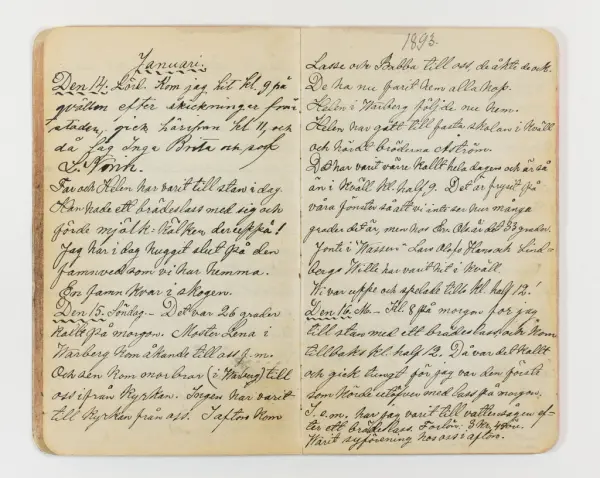 Januari.
Den 14. Lörd. Kom jag hit kl. 9 på
qvällen efter skickningar från
staden, gick härifrån kl 11, och
då låg Inga Brita och sof
Far och Helén har varit till stan i dag.
Han hade ett brädeslass med sig och
förde mjölk-kälken derest på!
Jag har i dag huggit slut på den
famnved som vi har hemma.
En famn kvar i skogen.
Den 15. Söndag – Det var 26 grader
kallt på morgon. Moster Lena i
Wärberg kom åkande till oss f.m.
Och sen kom morbror (i Wärberg) till
oss ifrån kyrkan. Ingen har varit
till kyrkan från oss. I afton kom
1893.
Lasse och Babba till oss, de åkte de ock.
De ha nu farit hem alla hop.
Helén i Wärberg följde nu hem.
Helén har gått till fasta skolan i kväll
och hördt bröderna Åström.
Det har varit värre kallt hela dagen och är så
än i kväll kl. half 9. Det är frysit på
våra fönster så att vi inte ser hur många
grader det är, men hos Er. Ols är det 33 grader.
Jonte i "Wassen" Lars Olofs Hans och Lind-
bergs Wille har varit hit i kväll.
Vi var uppe och spelade tills kl. half 12!
Den 16. M. – Kl. 8 på morgon for jag
till stan med ett brädeslass och kom
tillbaks kl. half 12. Då var det kallt
och gick tungt för jag var den förste
som körde utefven med lass på morgon.
I. e.m. har jag varit till vattusågen ef-
ter ett brädeslass. Förlön. 3 kr,
Warit syförening hos oss i afton.